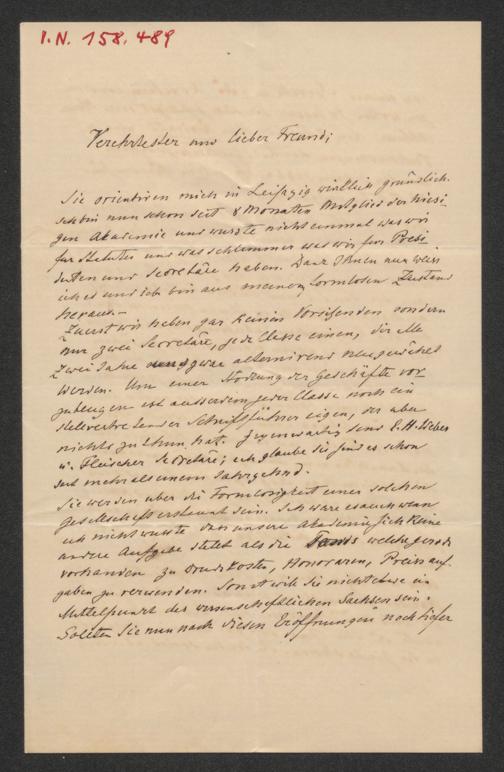 I.N. 158.489
Verehrtester und lieber Freund;
Sie orientiren mich in Leipzig wirklich gründlich.
ich bin nun schon seit 8 Monaten Mitglied der hiesi-
gen Akademie und wusste nicht einmal was wir
für Statuten und was schlimmer was wir für Präsi-
denten und Secretäre haben. Dank Ihnen nun weis
ich es und ich bin aus meinem formlosen Zustand
heraus.—
Zuerst wir haben gar keinen Vorsitzenden sondern
nur zwei Secretäre, jede Classe einen, die alle
zwei Jahre und zwar alternirend neu gewählt
werden. Um einer Stockung der Geschäfte vor
zubeugen ist ausserdem jeder Classe noch ein
stellvertretender Schriftführer eigen, der aber
nichts zu thun hat. Gegenwärtig sind E.H. Weber
u. Fleischer Secretäre; ich glaube sie sind es schon
seit mehr als einem Jahrzehnd.
Sie werden über die Formlosigkeit einer solchen
Gesellschaft erstaunt sein. Ich wäre es auch wenn
ich nicht wüsste dass unsere Akademie sich keine
andere Aufgabe stellt als die Fonds welche gerade
vorhanden zu Druckkosten, Honoraren, Preisauf-
gaben zu verwenden. Sonst will sie nicht etwa ein
Mittelpunkt des wissenschaftlichen Sachsen sein.
Sollten Sie nun nach diesen Eröffnungen noch tiefer